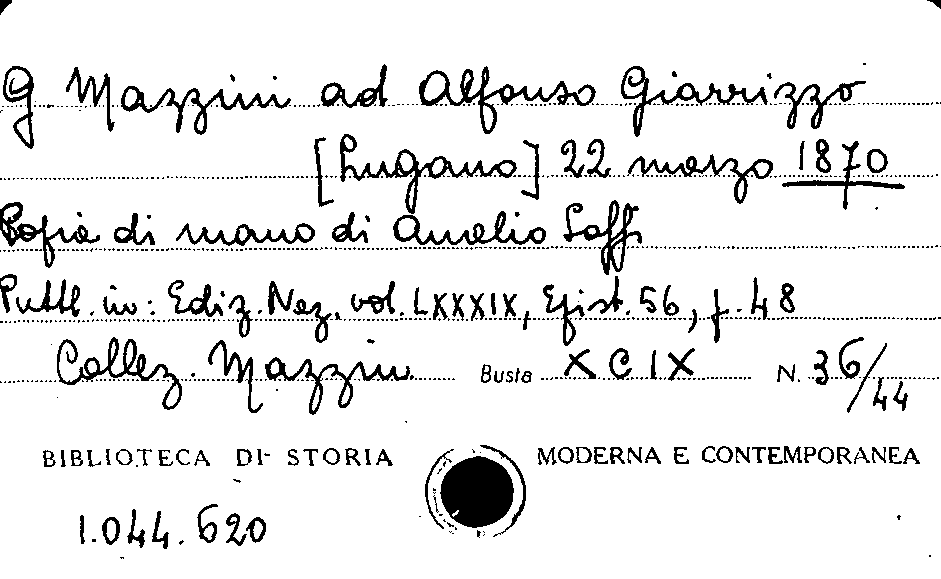 G. Mazzini ad Alfonso Giarrizzo
[Lugano] 22 marzo 1870
Copia di mano di Aurelio Saffi
Pubbl. in: Ediz. Naz. vol. LXXXIX, Epist. 56, p. 48
Collez. Mazzini Busta XCIX N. 36/44
BIBLIOTECA DI STORIA MODERNA E CONTEMPORANEA
1.044.620